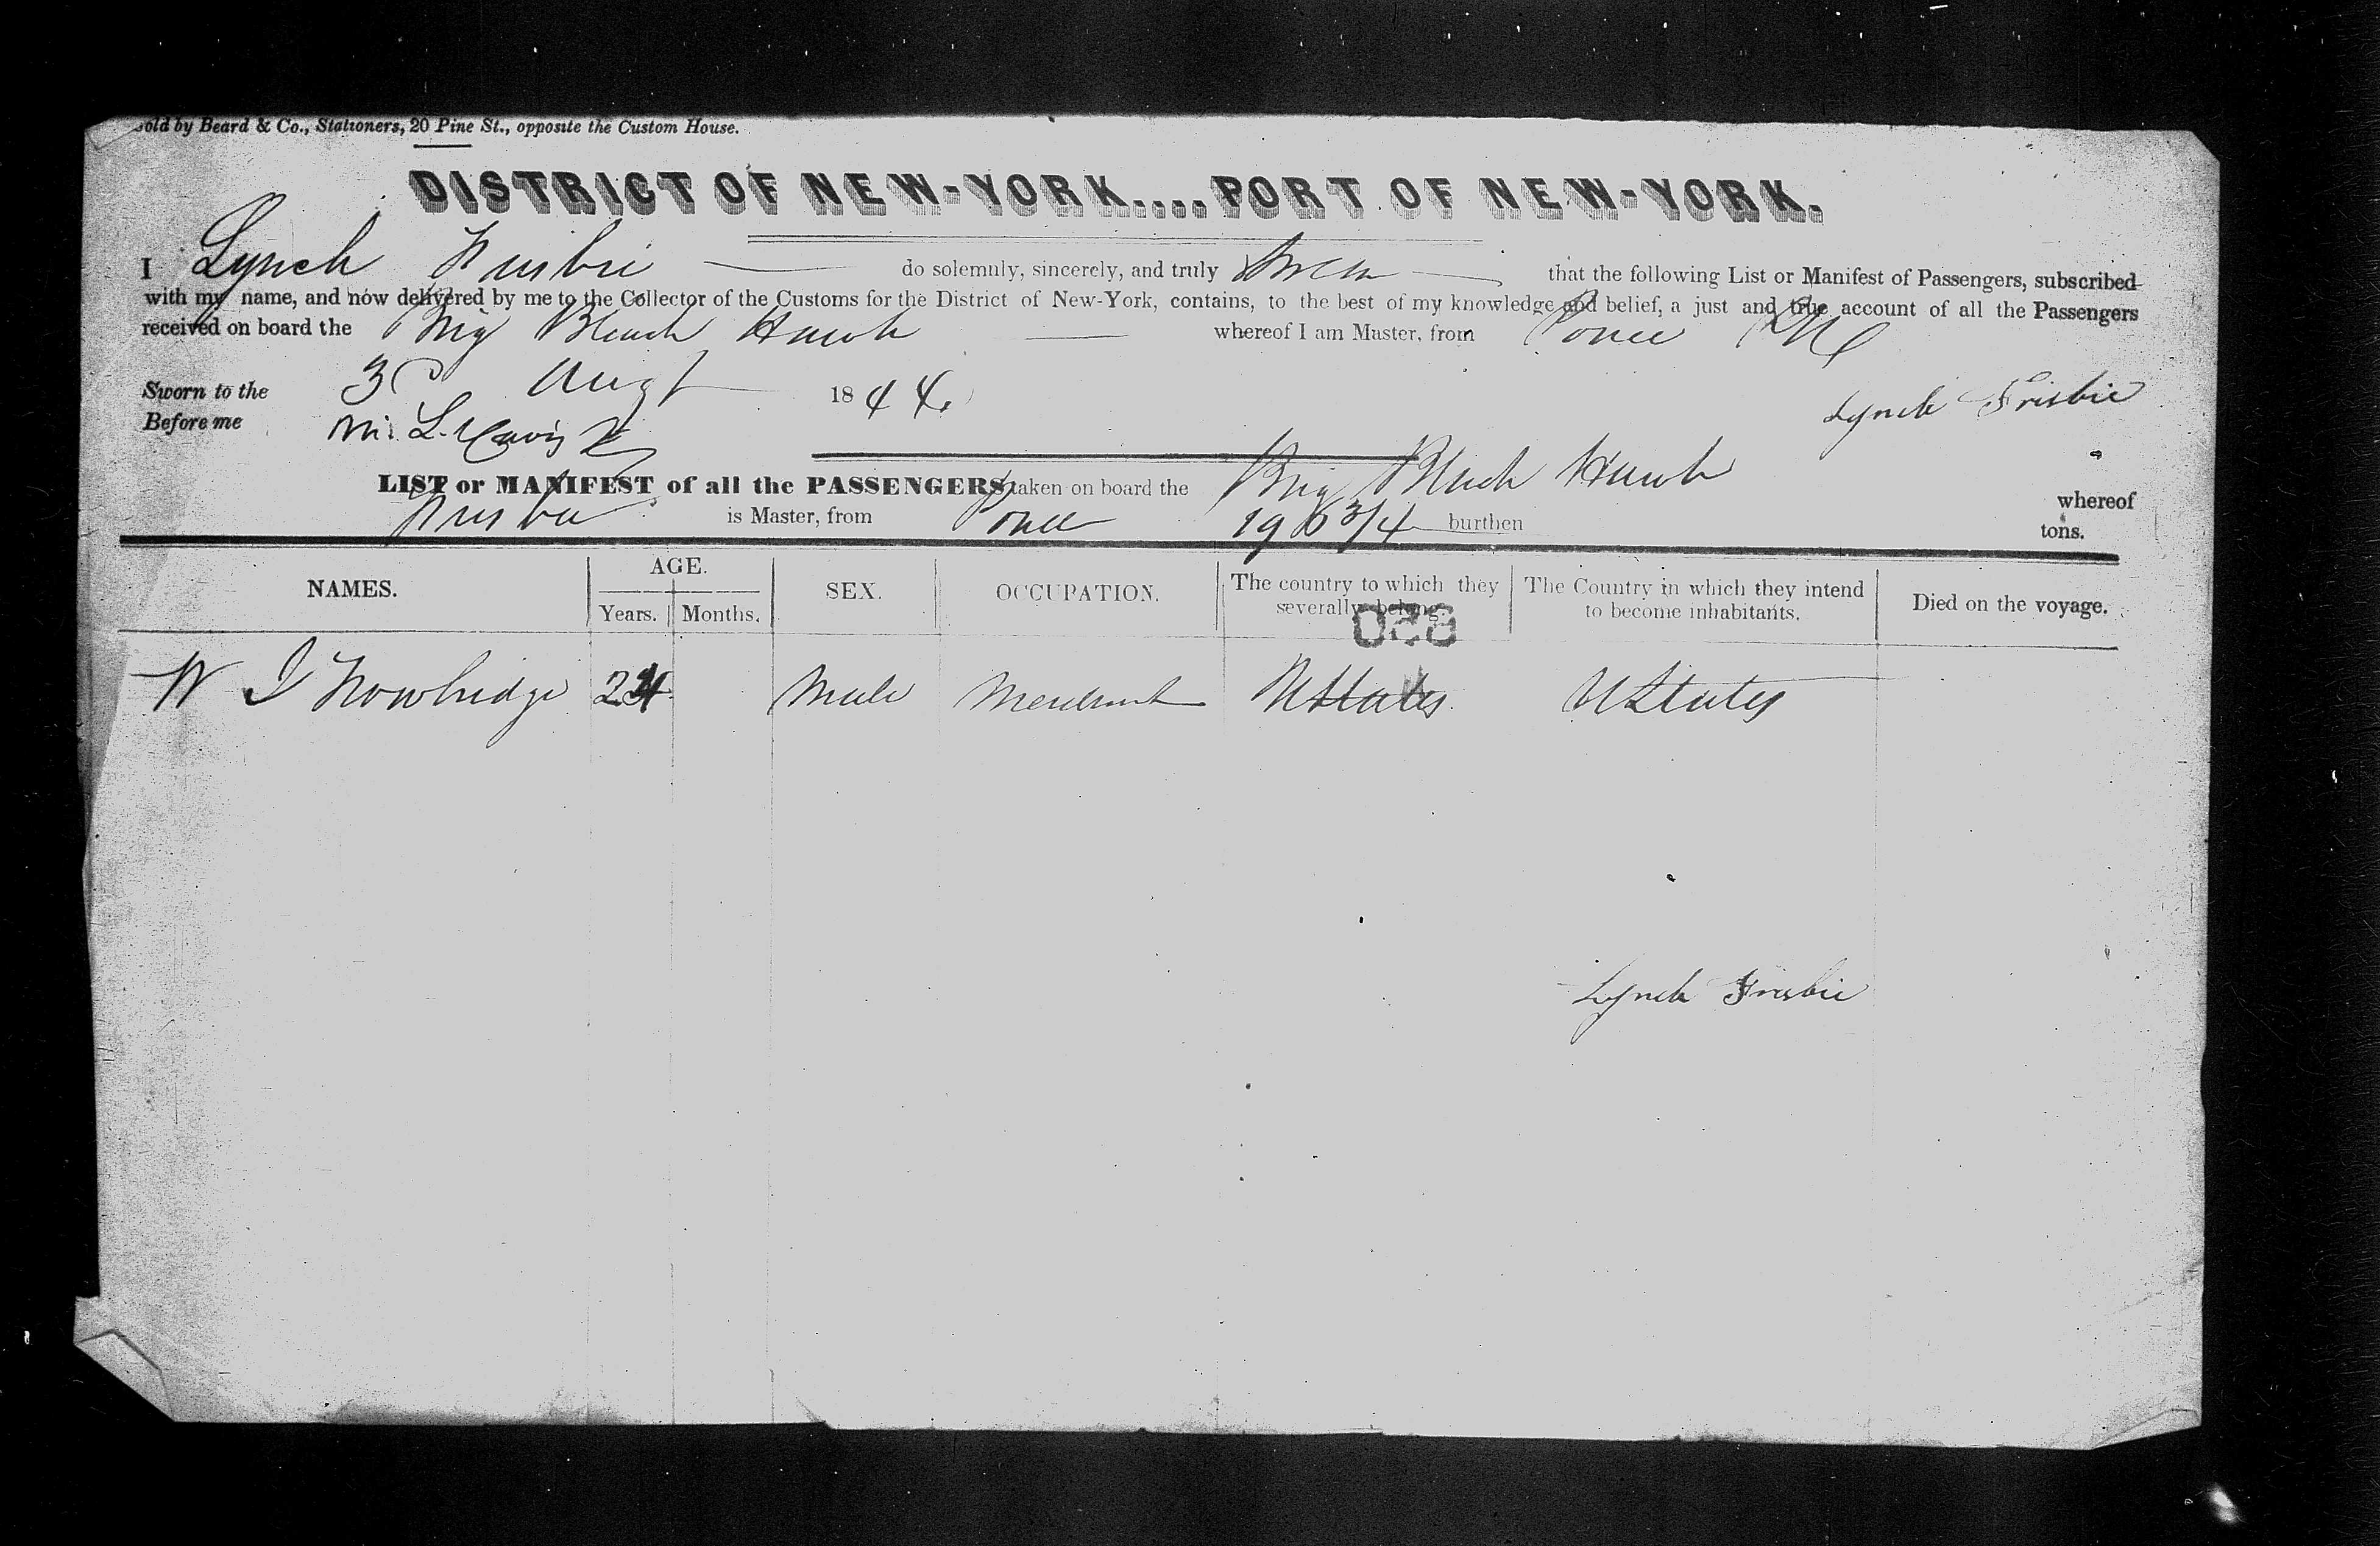 Sold by Beard & Co., Stationers, 20 Pine St., opposite the Custom House.
DISTRICT OF NEW-YORK....PORT OF NEW-YORK.
I Lynch Frisbie do solemnly, sincerely, and truly Swear that the following List or Manifest of Passengers, subscribed
with my name, and now delivered by me to the Collector of the Customs for the District of New-York, contains, to the best of my knowledge and belief, a just and true account of all the Passengers
received on board the Brig Black Hawk whereof I am Master, from Ponce
Sworn to the 30 Augt 1844.
Lynch Frisbie
Before me
LIST or MANIFEST of all the PASSENGERS taken on board the Brig Black Hawk whereof
Frisbie is Master, from Ponce 196 3/4 burthen tons.
NAMES. AGE. SEX. OCCUPATION. The country to which they severally belong. The Country in which they intend to become inhabitants. Died on the voyage.
Years. Months.
W I Trowbridge 24 Male Merchant U States U States
Lynch Frisbie